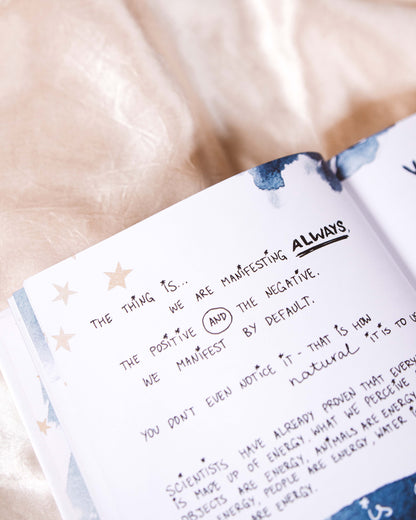 THE THING IS...
WE ARE MANIFESTING ALWAYS.
THE POSITIVE AND THE NEGATIVE.
WE MANIFEST BY DEFAULT.
YOU DON'T EVEN NOTICE IT - THAT IS HOW
natural IT IS TO US
SCIENTISTS HAVE ALREADY PROVEN THAT EVERY
IS MADE UP OF ENERGY. WHAT WE PERCEIVE
OBJECTS ARE ENERGY, ANIMALS ARE ENERGY
ENERGY, PEOPLE ARE ENERGY, WATER
ARE ENERGY.
is